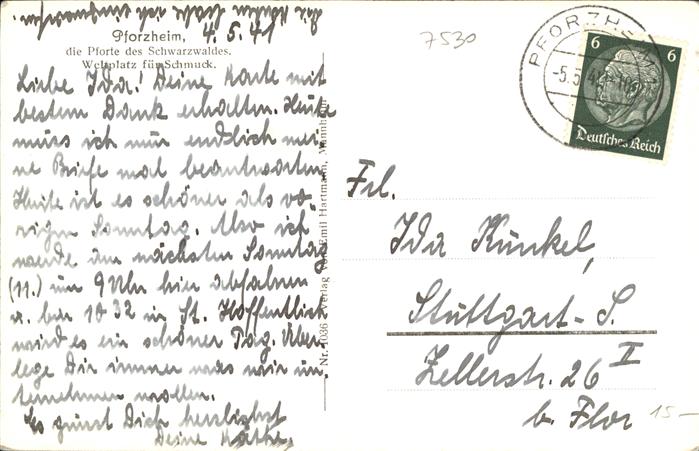 Die Karten habe ich eingeworfen.
4.5.41
Pforzheim,
die Pforte des Schwarzwaldes.
Weltplatz für Schmuck.
Liebe Ida! Deine Karte mit
bestem Dank erhalten. Heute
muss ich nun endlich mei-
ne Briefe mal beantworten.
Heute ist es schöner als vo-
rigen Sonntag. Also ich
werde am nächsten Sonntag
(11.) um 9 Uhr hier abfahren
u. bin 10 32 in St. Hoffentlich
wird es ein schöner Tag. Über-
lege Dir immer was wir un-
ternehmen wollen.
Es grüsst Dich herzlichst
Deine Käthe.
Nr. 1036 Verlag von Emil Hartmann, Mannheim
7530
PFORZHEIM
-5.5.41
6 6
Deutsches Reich
Frl.
Ida Künkel,
Stuttgart-S.
Zellerstr. 26 II
b. Flor
15-